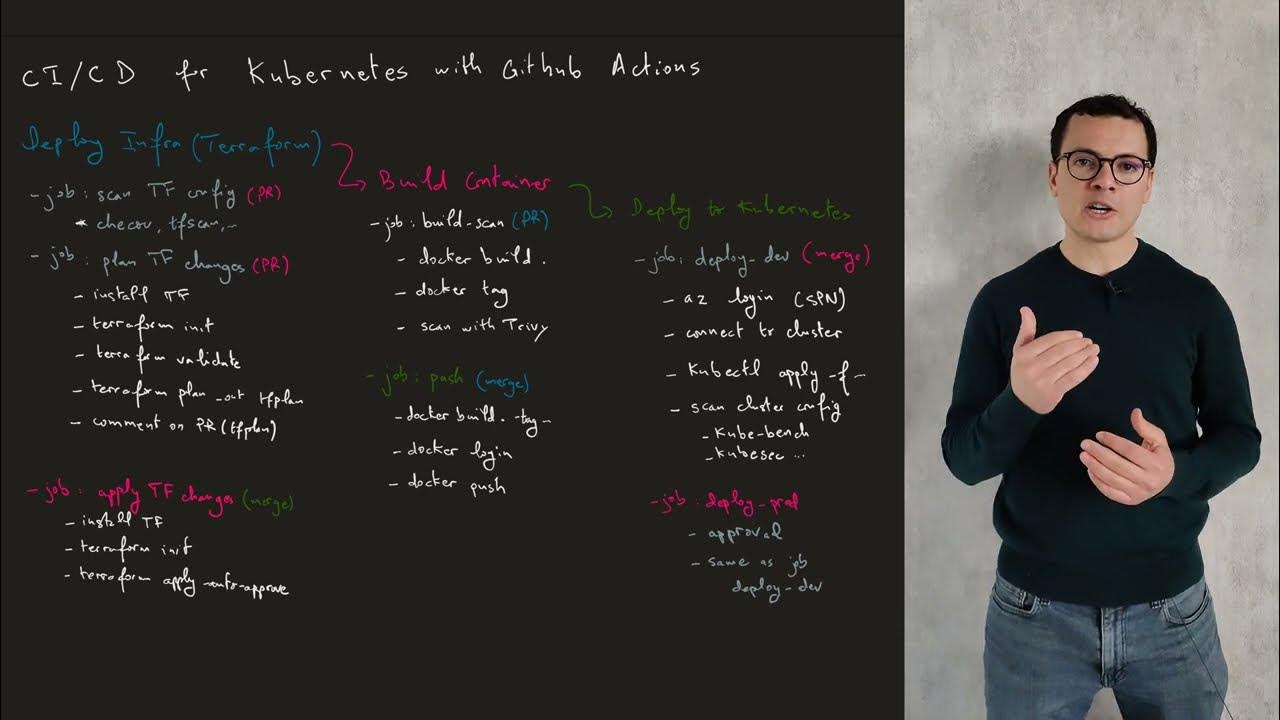 CI/CD for Kubernetes with Github Actions
Deploy Infra (Terraform)
- job : scan TF config (PR)
* checov, tfscan, ..
- job : plan TF changes (PR)
- install TF
- terraform init
- terraform validate
- terraform plan _out tfplan
- comment on PR (tfplan)
- job : apply TF changes (merge)
- install TF
- terraform init
- terraform apply -auto-approve
Build Container
- job : build-scan (PR)
- docker build .
- docker tag
- scan with Trivy
- job : push (merge)
- docker build . -tag -
- docker login
- docker push
Deploy to Kubernetes
- job : deploy_dev (merge)
- az login (SPN)
- connect to cluster
- Kubectl apply -f -
- scan cluster config
- Kube-bench
- Kubesec ...
- job : deploy_prod
- approval
- same as job
deploy_dev